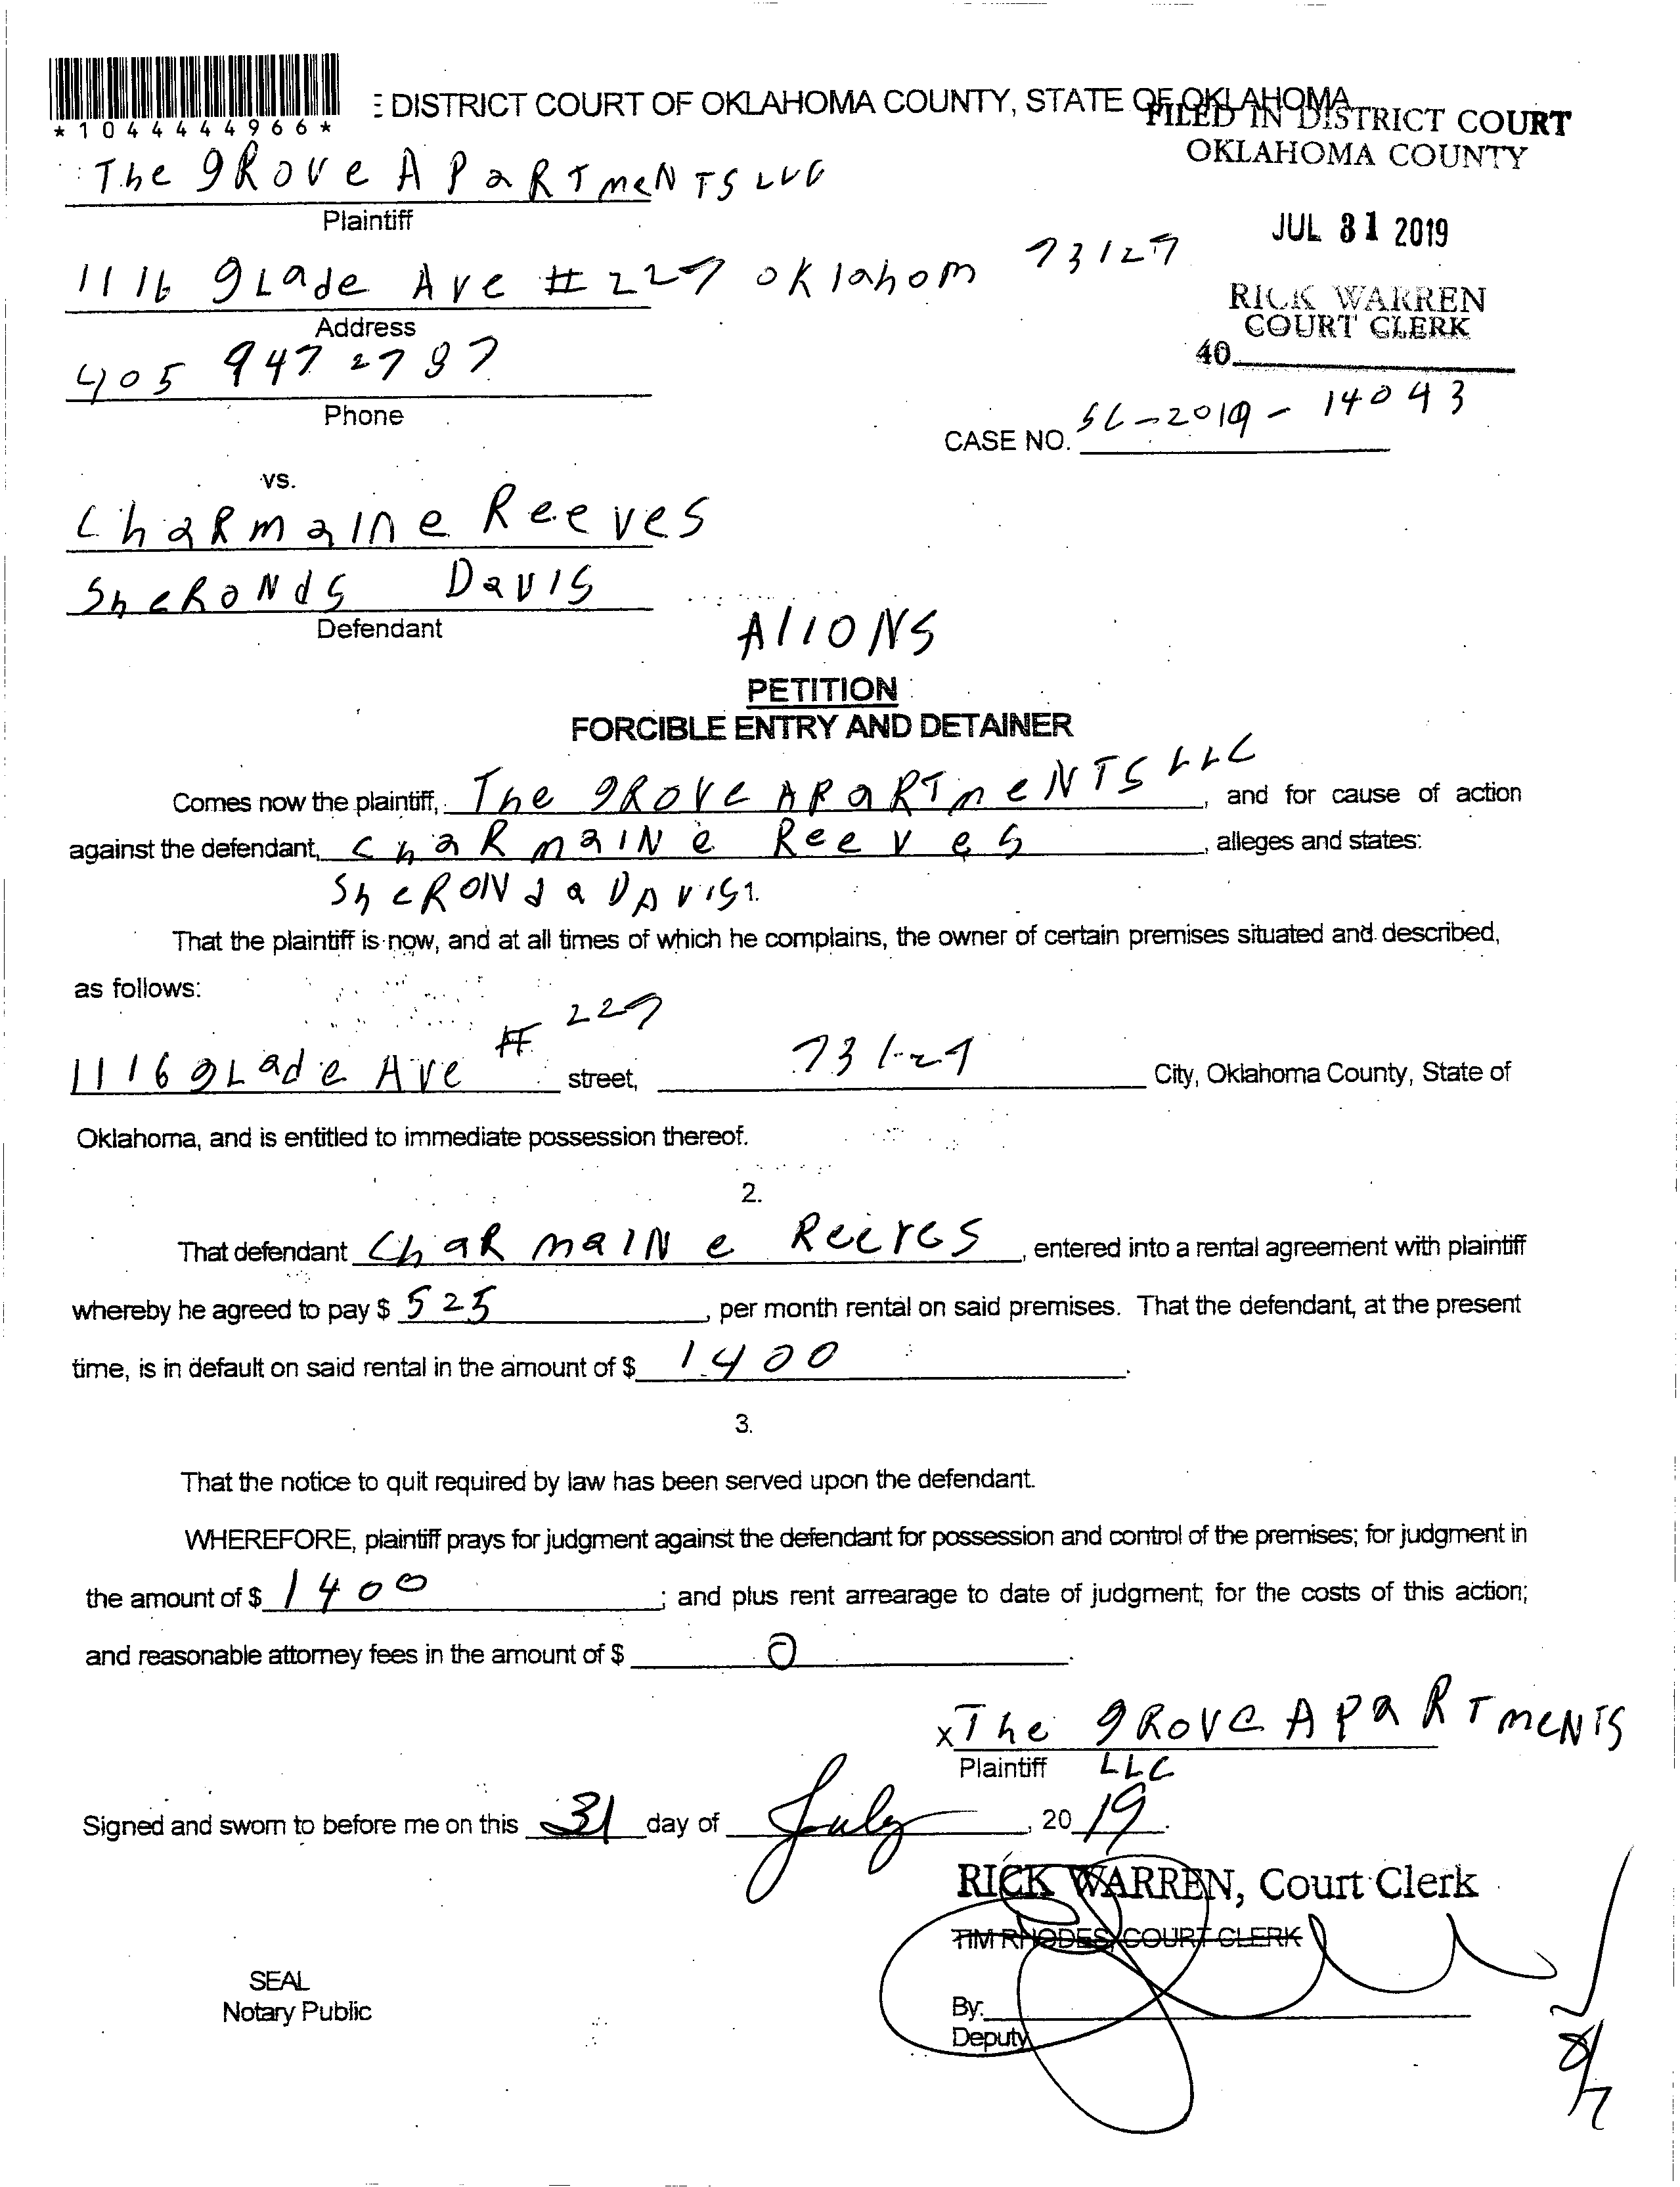 *1044444966*
DISTRICT COURT OF OKLAHOMA COUNTY, STATE OF OKLAHOMA
FILED IN DISTRICT COURT
OKLAHOMA COUNTY
The gRove APaRTmeNTS LLC
Plaintiff
JUL 31 2019
1116 gLade Ave # 227 oklahom 73127
Address
RICK WARREN
COURT CLERK
40
405 947 2787
Phone
CASE NO. SC-2019-14043
vs.
ChaRmaine Reeves
SheRoNdS DavIS
Defendant
AlIONS
PETITION
FORCIBLE ENTRY AND DETAINER
Comes now the plaintiff, The gROVe APaRTmeNTS LLC, and for cause of action
against the defendant, ChaRmaINe Reeves, alleges and states:
SheRONda DAVIS
1.
That the plaintiff is now, and at all times of which he complains, the owner of certain premises situated and described,
as follows:
1116 gLade Ave # 227 street, 73127 City, Oklahoma County, State of
Oklahoma, and is entitled to immediate possession thereof.
2.
That defendant ChaRmaINe Reeves, entered into a rental agreement with plaintiff
whereby he agreed to pay $ 525, per month rental on said premises. That the defendant, at the present
time, is in default on said rental in the amount of $ 1400.
3.
That the notice to quit required by law has been served upon the defendant.
WHEREFORE, plaintiff prays for judgment against the defendant for possession and control of the premises; for judgment in
the amount of $ 1400; and plus rent arrearage to date of judgment; for the costs of this action;
and reasonable attorney fees in the amount of $ 0.
x The gRove APaRTmeNTS
Plaintiff LLC
Signed and sworn to before me on this 31 day of July, 2019.
RICK WARREN, Court Clerk
TIM RHODES, COURT CLERK
SEAL
Notary Public
By:
Deputy
8/7